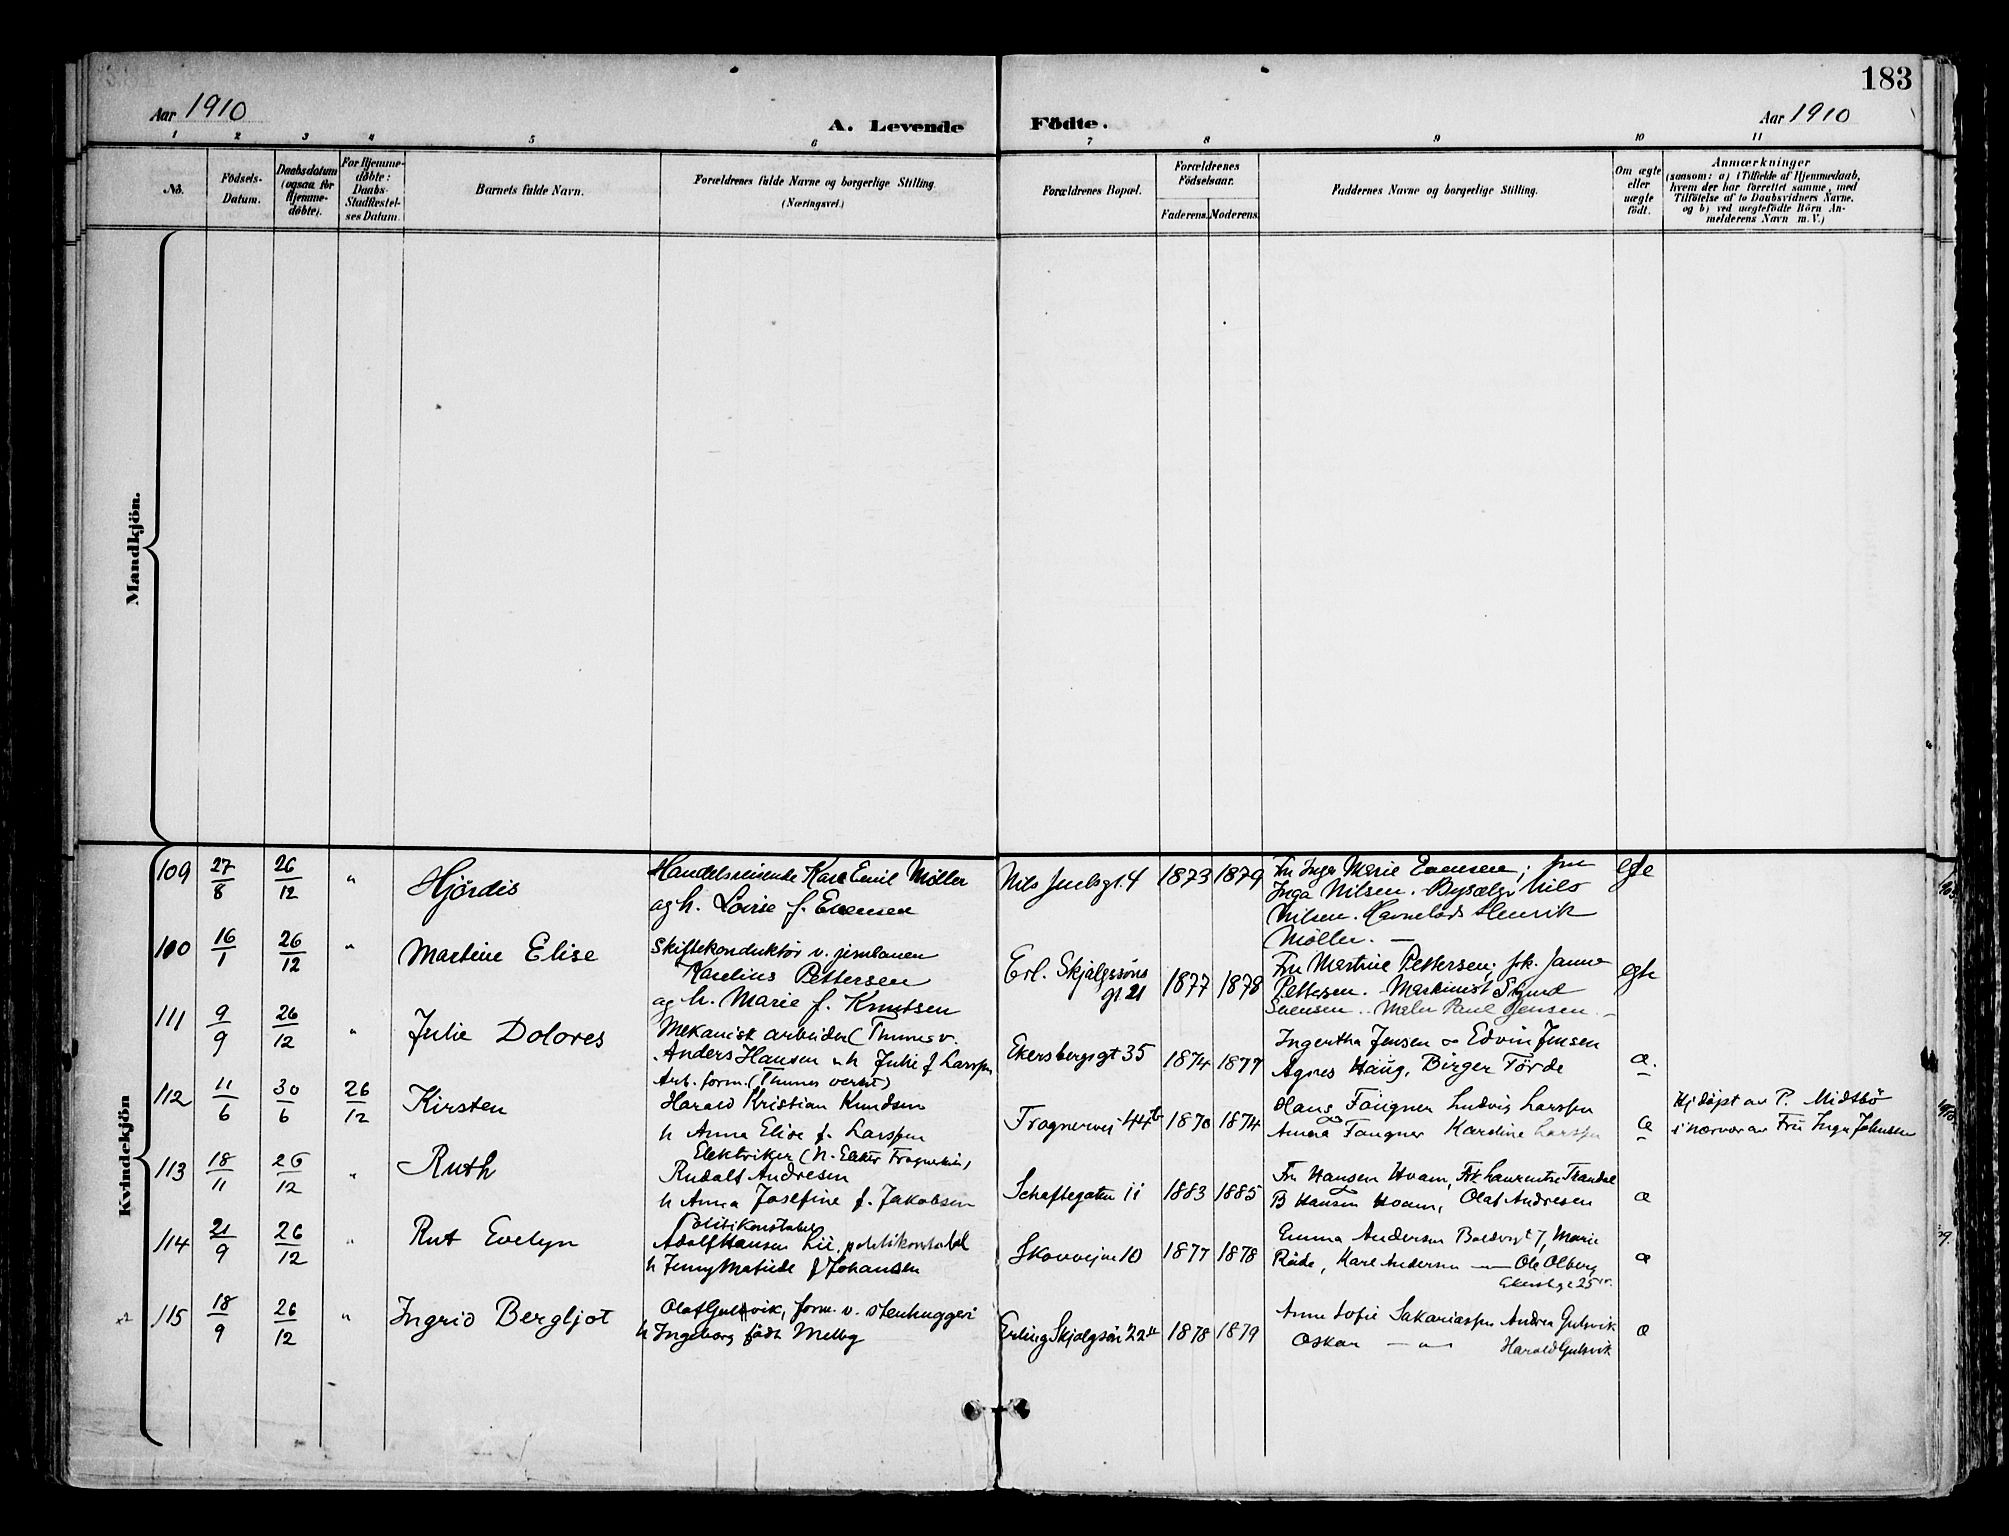 183
Aar 1910
A. Levende Födte.
Aar 1910
1 2 3 4 5 6 7 8 9 10 11
No.
Födsels-
Datum.
Daabsdatum
(ogsaa for
Hjemme-
döbte).
For Hjemme-
döbte:
Daabs-
Stadfæstel-
ses Datum.
Barnets fulde Navn.
Forældrenes fulde Navne og borgerlige Stilling.
(Næringsvei.)
Forældrenes Bopæl.
Forældrenes
Födselsaar.
Faderens. Moderens.
Faddernes Navne og borgerlige Stilling.
Om ægte
eller
uægte
födt.
Anmærkninger
(saasom: a) i Tilfælde af Hjemmedaab,
hvem der har forrettet samme, med
Tilföielse af to Daabsvidners Navne,
og b) ved uægtefödte Börn An-
melderens Navn m. V.)
Mandkjön.
Kvindekjön
109 27/8 26/12 " Hjördis
Handelsreisende Karl Emil Möller
og h. Lovise f. Evensen
Nils Juelsgt. 4 1873 1879
Fru Inger Marie Evensen; fru
Inga Nilsen. Bysælg. Nils
Nilsen. Havnelods Henrik
Möller. —
egte
100 16/1 26/12 " Martine Elise
Skiftekonduktör v. jernbanen
Karelius Pettersen
og h. Marie f. Knutsen
Erl. Skjalgssöns
gt 21 1877 1878
Fru Martine Pettersen; frk. Janna
Pettersen. Maskinist
Svensen. Maler Paul Jensen. —
egte
111 9/9 26/12 " Julie Dolores
Mekanisk arbeider (Thunes v.
Anders Hansen u h Julie f Larssen
Ekersbergsgt 35 1874 1877
Ingertha Jensen o Edvin Jensen
Agnes Haug, Birger Förde
æ.
112 11/6 30/6 26/12 Kirsten
Arb. form. (Thunes verkst)
Harald Kristian Knudsen
h Anna Elise f. Larssen
Frognervei 44b 1870 1874
Hans Faugner Ludvig Larssen
Anna Faugner Hardine Larssen
æ
Hj döpt av P. Midtbö
i nærvær av Fru Inga Johnsen
113 18/11 26/12 " Ruth
Elektriker (N. Elektr Frognerkil.)
Rudolf Andresen
h Anna Josefine f. Jakobsen
Schaftegaten 11 1883 1885
Fru Hansen Hvam, Frk Laurentze Trandal
B Hansen Hvam, Olaf Andresen
æ
114 21/9 26/12 " Rut Evelyn
Politikonstabel
Adolf Hansen Lie, politikonstabel
h Jenny Matilde f Johansen
Skovveien 10 1877 1878
Emma Andersen 7, Marie
Röde, Karl Andersen —"— Ole Olberg
æ
115 18/9 26/12 " Ingrid Bergljot
Olaf Gulsvik, form. v. stenhuggeri
h Ingeborg födt Melby
Erling Skjalgsön 22 1878 1879
Anne Sofie Sakariassen Andrea Gulsvik
Oskar —"— Harald Gulsvik
æ